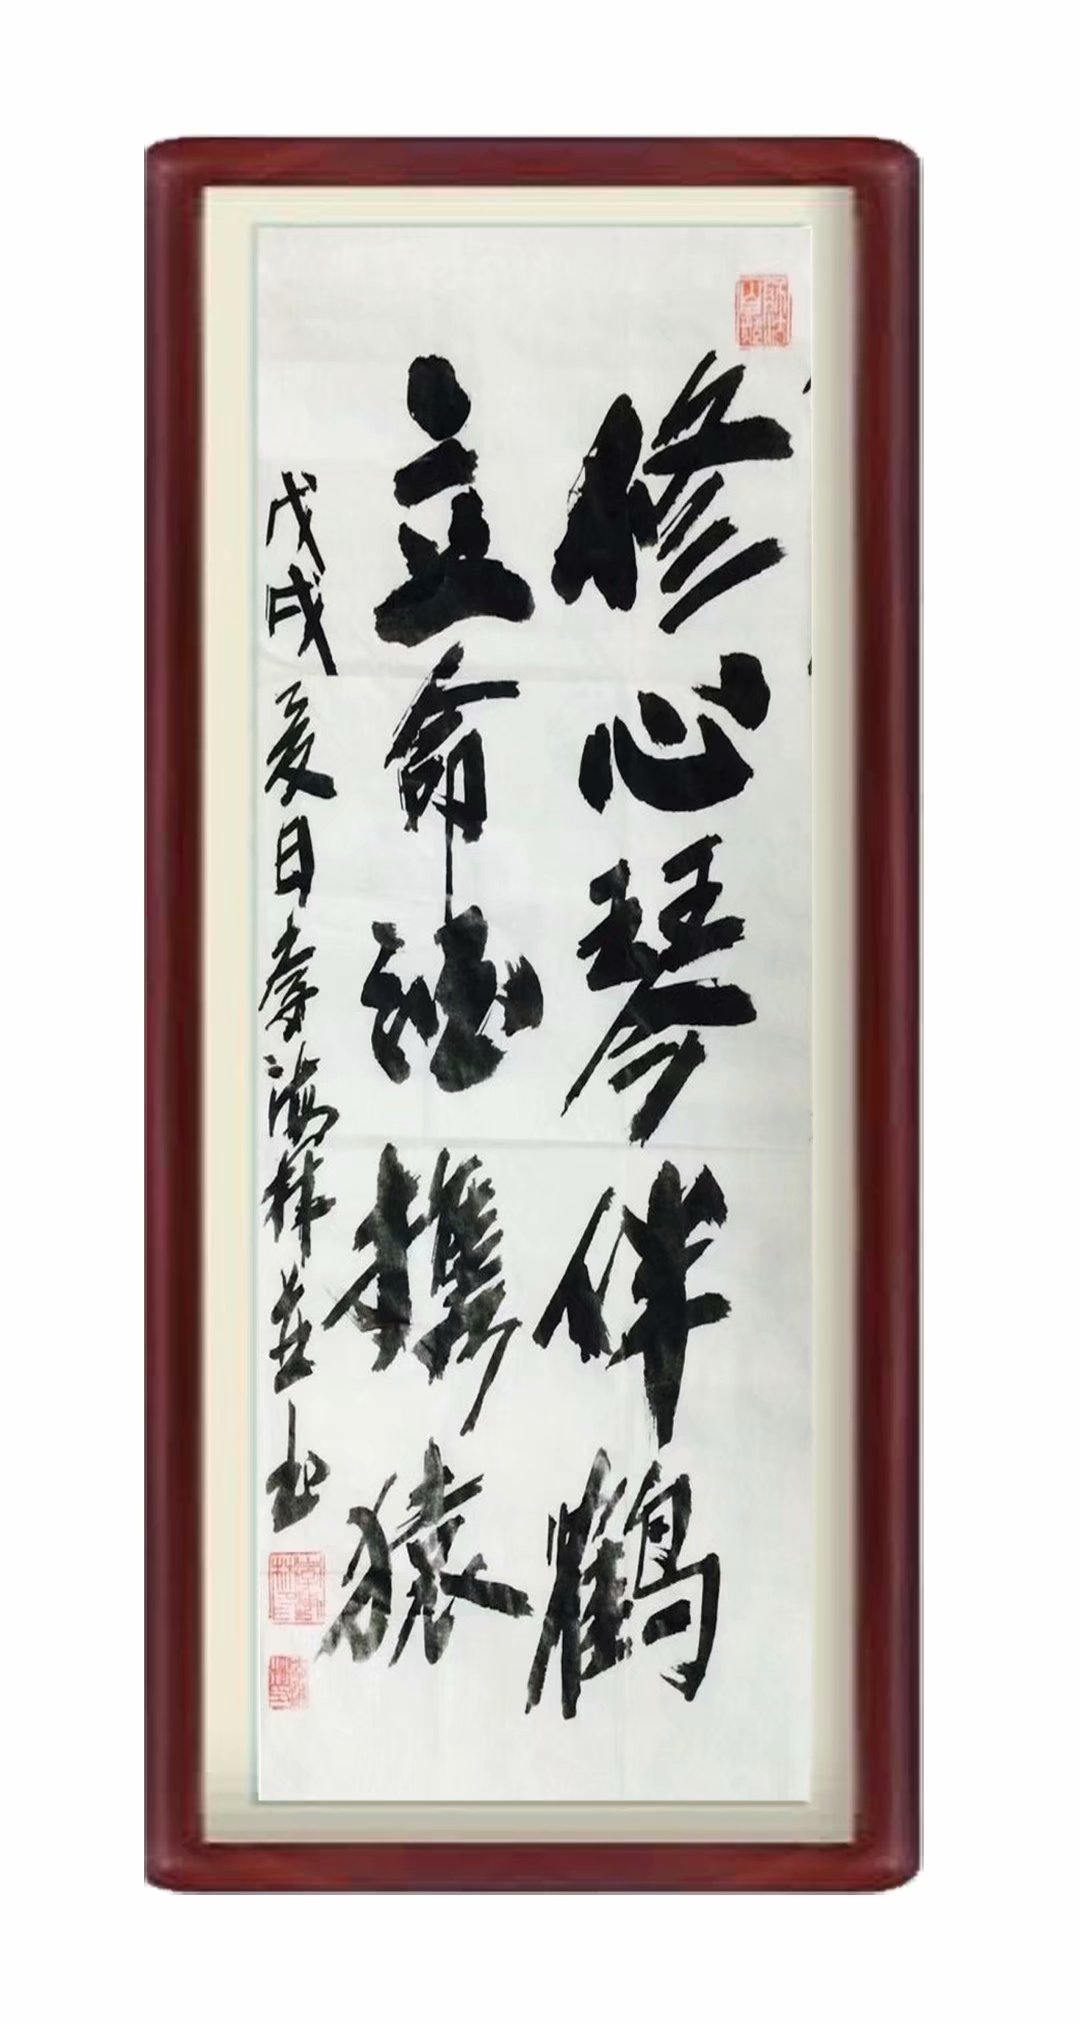 修心琴伴鹤
立命携猿
戊戌夏日李海并书